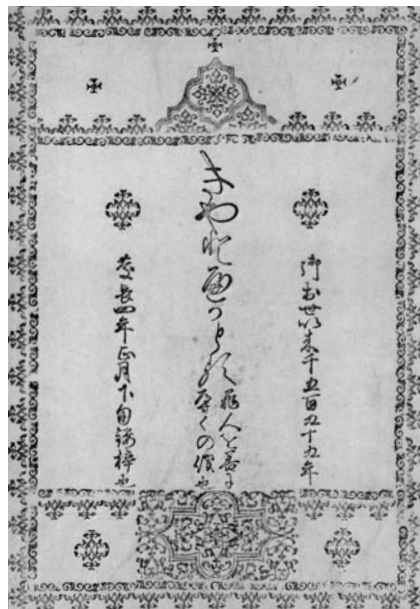 御出世以来千五百九十九年
ぎやどぺかどる
罪人を善に
導くの儀也
慶長四年正月下旬鏤梓也